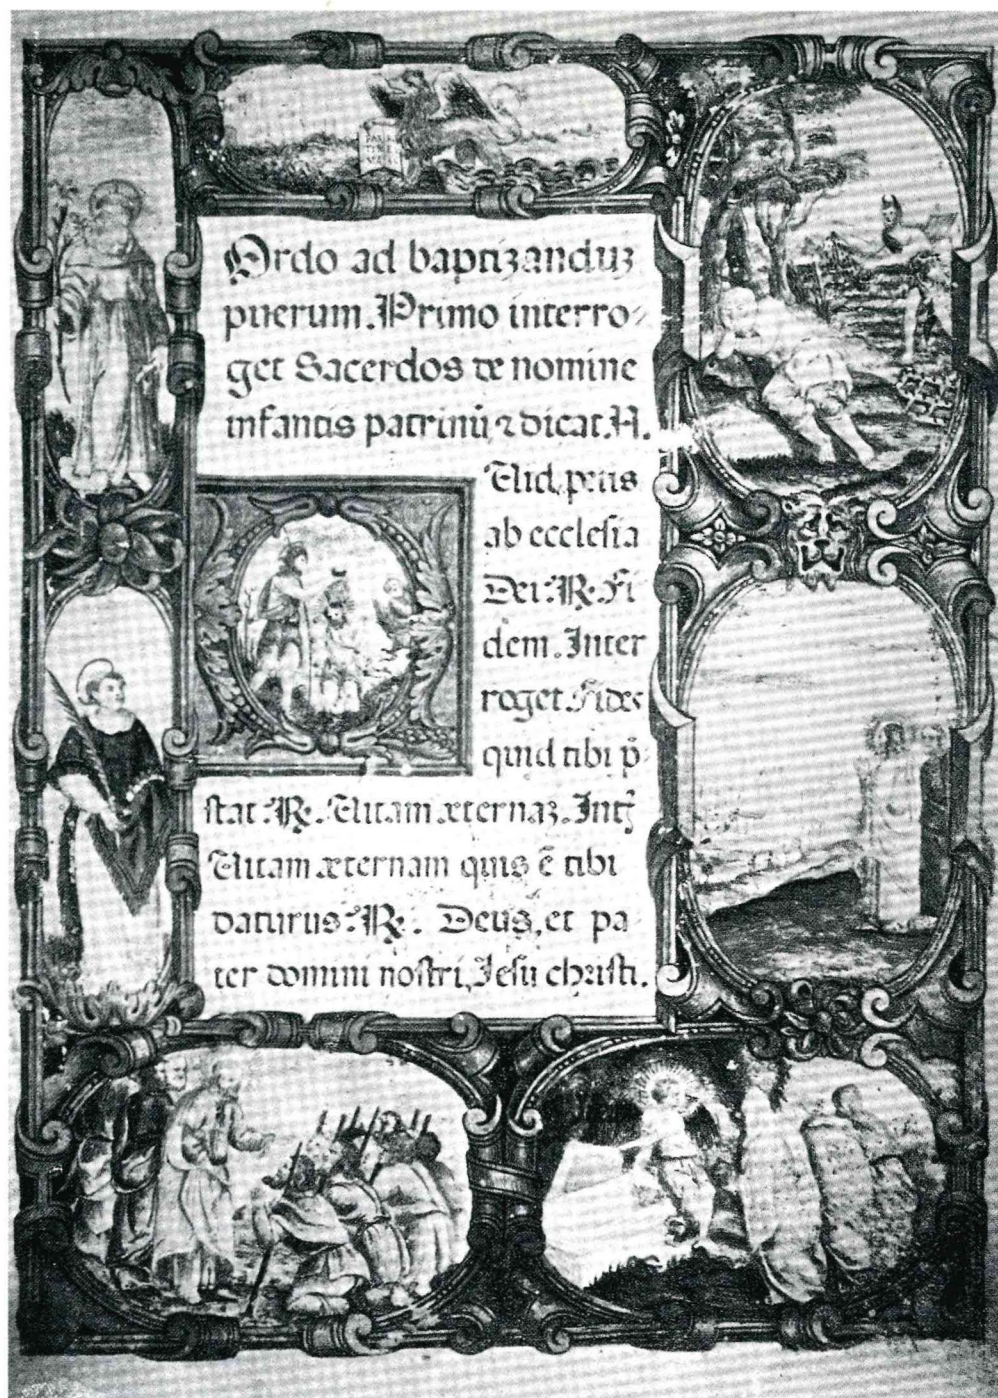 Ordo ad baptizanduz
puerum. Primo interro-
get Sacerdos de nomine
infantis patrinū, ⁊ dicat. N.
Quid, petis
ab ecclesia
Dei: ℟. Fi
dem. Inter
roget. Fides
quid tibi p̄-
stat. ℟. Vitam æternaz. Int̄
Vitam æternam quis ē tibi
daturus: ℟. Deus, et pa
ter domini nostri, Jesu christi.